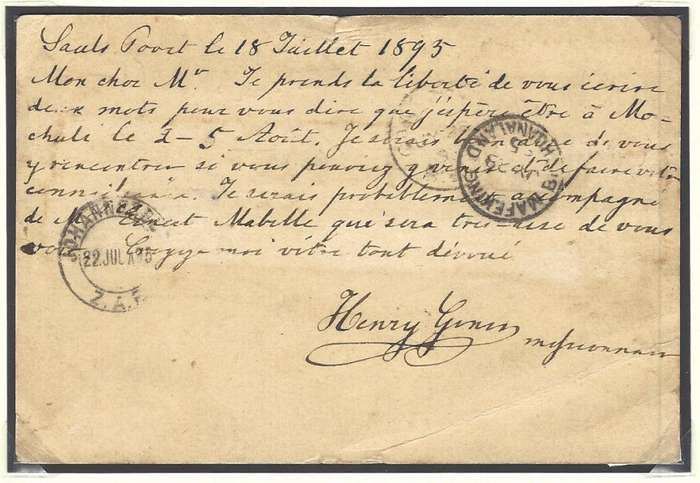 Sauls Poort le 18 Juillet 1895
Mon cher Mr. Je prends la liberté de vous écrire
deux mots pour vous dire que j'espère être à Mo-
chuli le 2-5 Août. Je serais bien aise de vous
y rencontrer si vous pouviez y venir et de faire votre
connaissance. Je serais probablement accompagné
de Mr Ernest Mabille qui sera très-aise de vous
voir. Croyez moi vôtre tout dévoué
Henry Gonin
missionnaire
JOHANNESBURG
22 JUL 95
Z.A.R.
MAFEKING
B. BECHUANALAND
JY 25
95